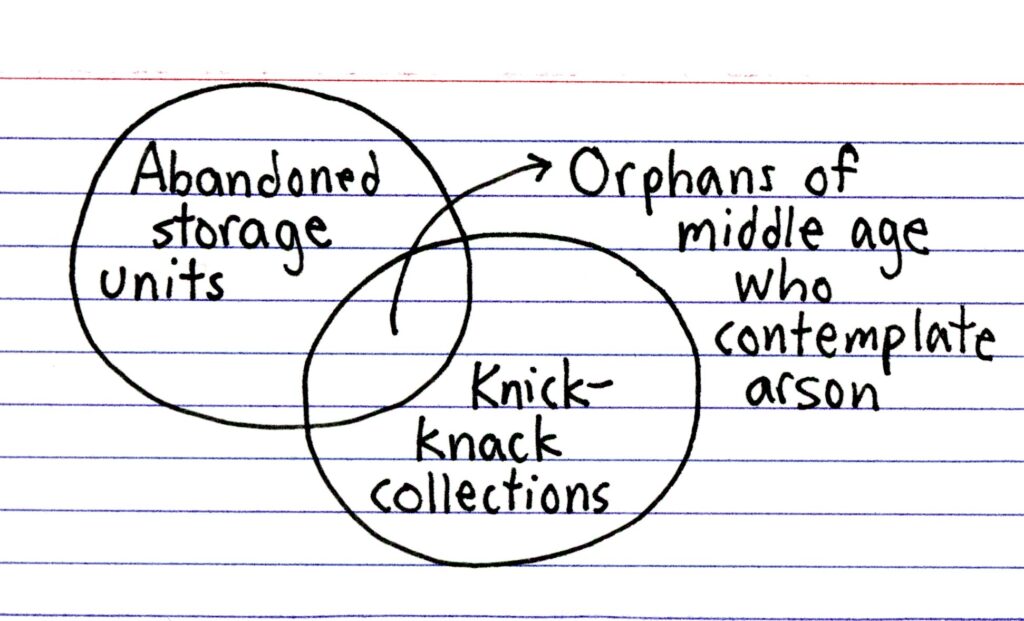 Abandoned
storage
units
Orphans of
middle age
who
contemplate
arson
Knick-
knack
collections